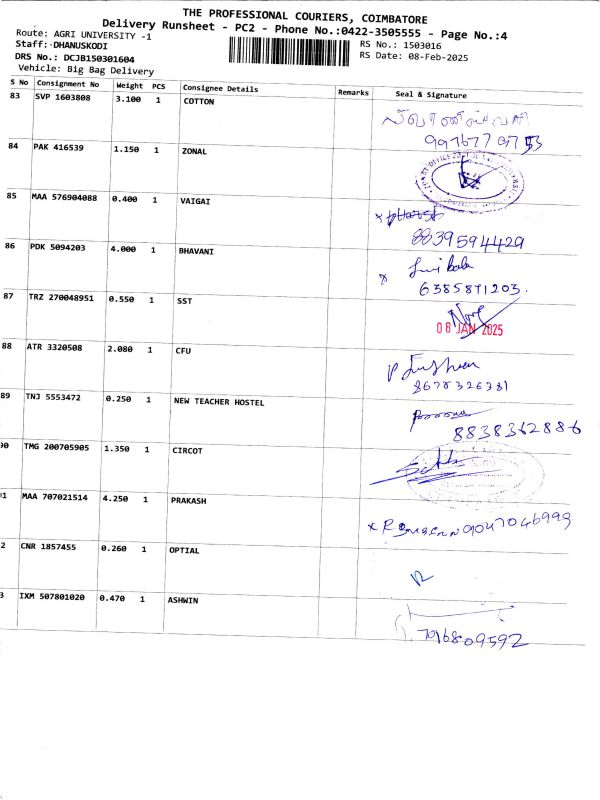 THE PROFESSIONAL COURIERS, COIMBATORE
Delivery Runsheet - PC2 - Phone No.:0422-3505555 - Page No.:4
Route: AGRI UNIVERSITY -1
Staff:-DHANUSKODI
DRS No.: DCJB150301604
Vehicle: Big Bag Delivery
RS No.: 1503016
RS Date: 08-Feb-2025
S No Consignment No Weight PCS Consignee Details Remarks Seal & Signature
83 SVP 1603808 3.100 1 COTTON
84 PAK 416539 1.150 1 ZONAL
85 MAA 576904088 0.400 1 VAIGAI
8839594429
86 PDK 5094203 4.000 1 BHAVANI
6385871203.
87 TRZ 270048951 0.550 1 SST
08 JAN 2025
88 ATR 3320508 2.080 1 CFU
89 TNJ 5553472 0.250 1 NEW TEACHER HOSTEL
8838362886
90 TMG 200705905 1.350 1 CIRCOT
91 MAA 707021514 4.250 1 PRAKASH
9047046999
2 CNR 1857455 0.260 1 OPTIAL
3 IXM 507801020 0.470 1 ASHWIN
7016809592